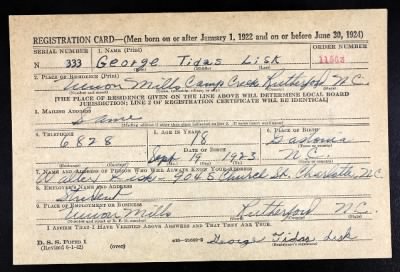 REGISTRATION CARD—(Men born on or after January 1, 1922 and on or before June 30, 1924)
SERIAL NUMBER 1. NAME (Print) ORDER NUMBER
N 333 George Tidas Lisk
2. PLACE OF RESIDENCE (Print)
Union Mills Camp Creek Rutherford N.C.
[THE PLACE OF RESIDENCE GIVEN ON THE LINE ABOVE WILL DETERMINE LOCAL BOARD
JURISDICTION; LINE 2 OF REGISTRATION CERTIFICATE WILL BE IDENTICAL]
3. MAILING ADDRESS
Same
4. TELEPHONE 5. AGE IN YEARS 6. PLACE OF BIRTH
6828 18 Gastonia
DATE OF BIRTH
Sept 19 1923 N.C.
7. NAME AND ADDRESS OF PERSON WHO WILL ALWAYS KNOW YOUR ADDRESS
Walter Lisk - 904 S Church St. Charlotte, N.C.
8. EMPLOYER'S NAME AND ADDRESS
Student
9. PLACE OF EMPLOYMENT OR BUSINESS
Union Mills Rutherford N.C.
I AFFIRM THAT I HAVE VERIFIED ABOVE ANSWERS AND THAT THEY ARE TRUE.
D. S. S. FORM 1
(Revised 6-1-42) (over) George Tidas Lisk